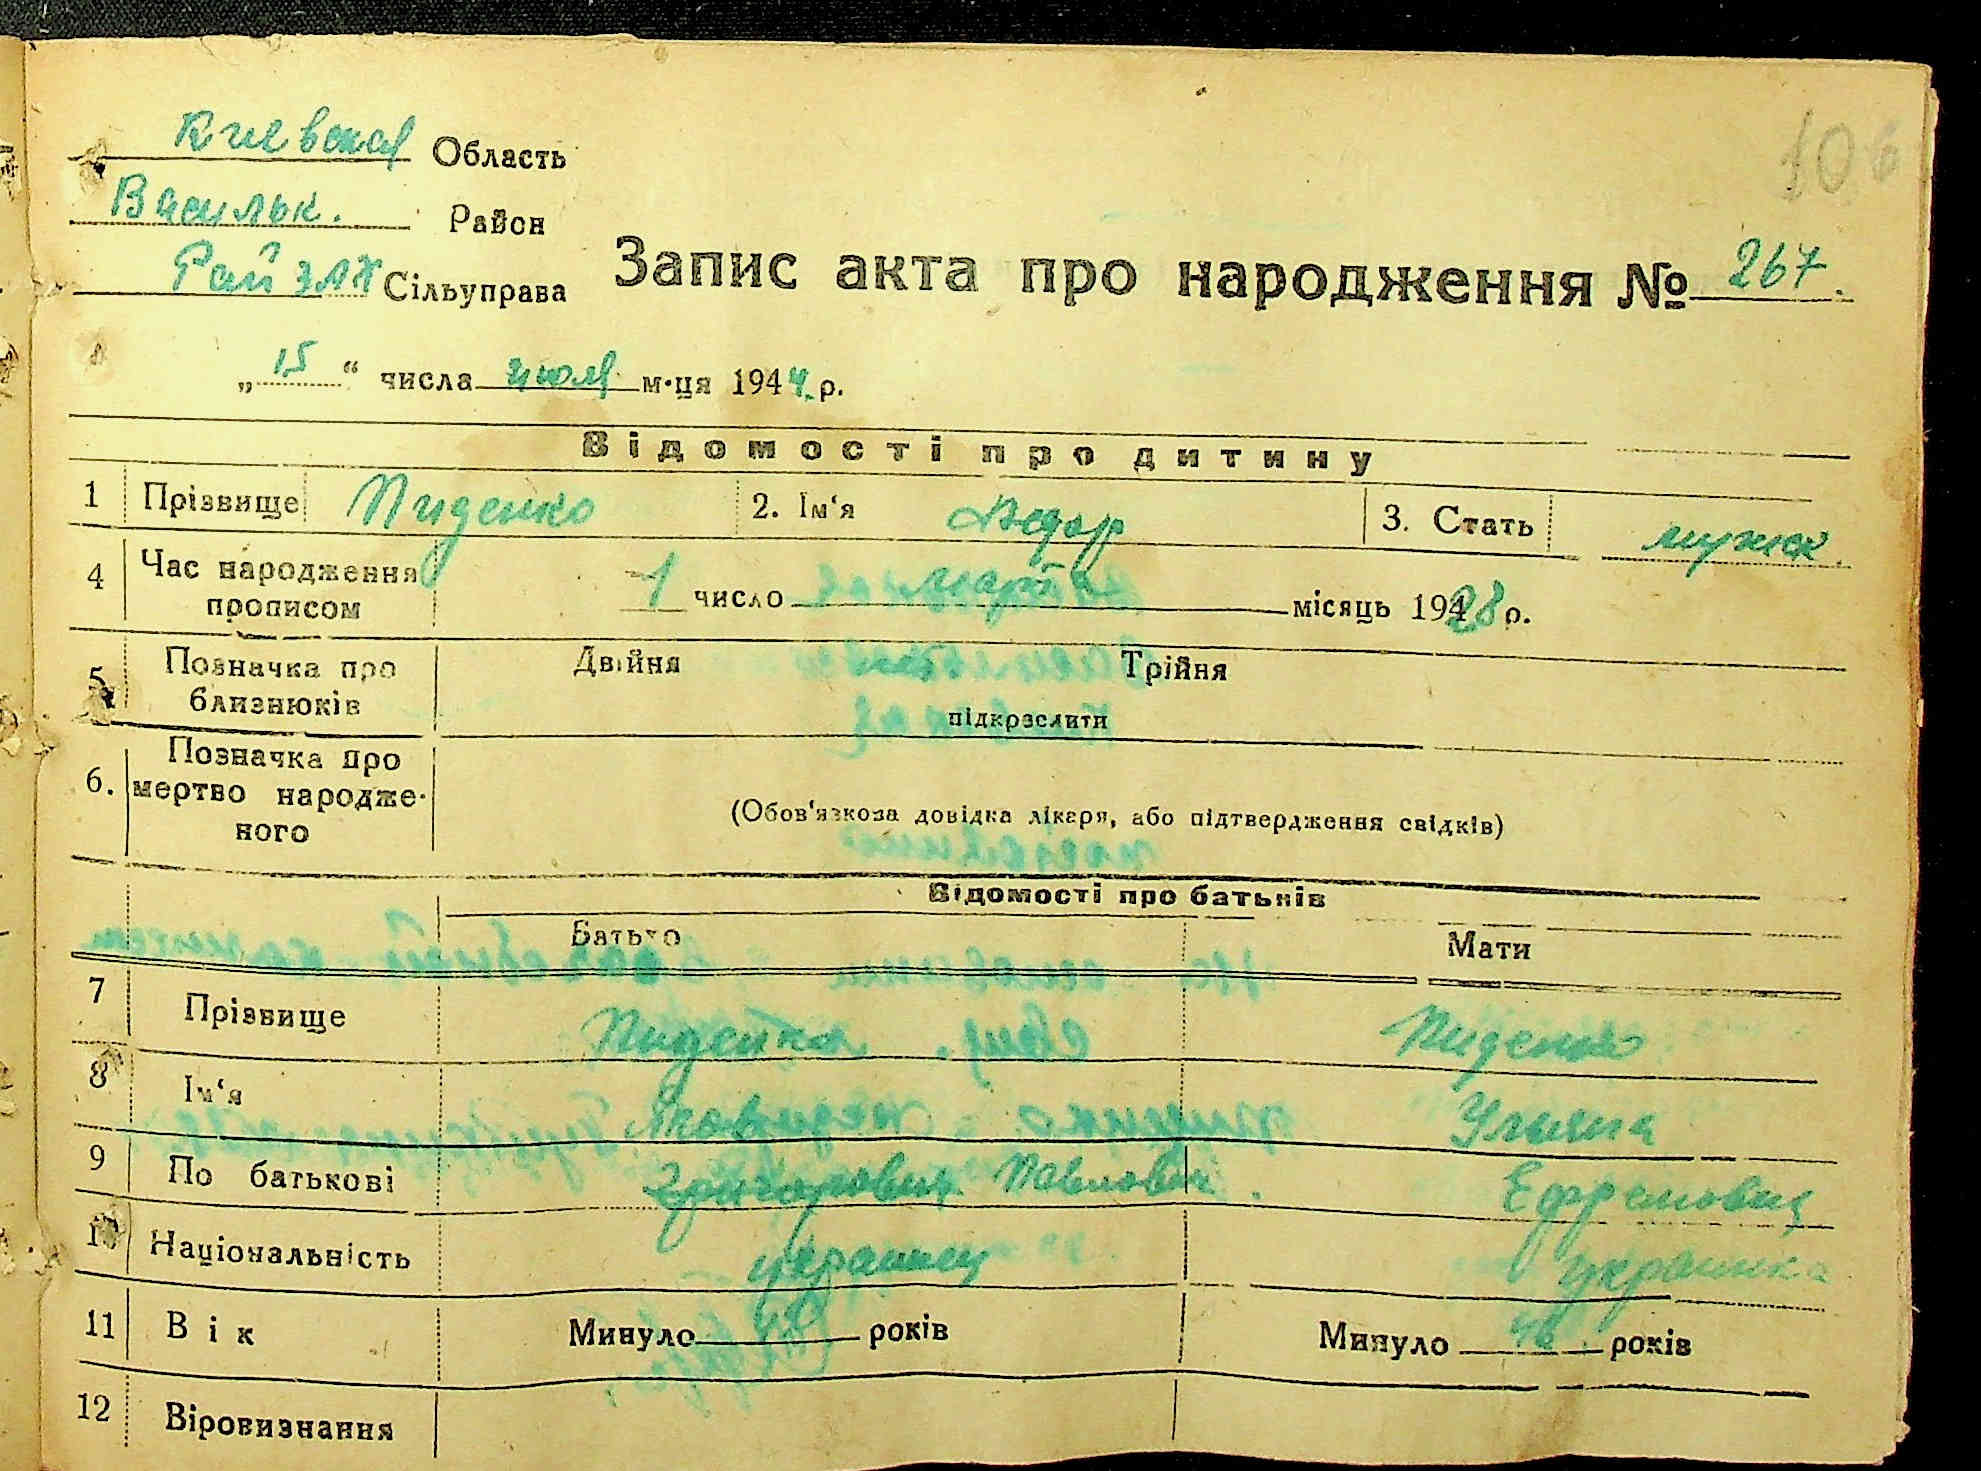 106
Киевская Область
Васильк. Район
Рай ЗАГС Сільуправа
Запис акта про народження № 267.
„15“ числа июля м-ця 1944 р.
Відомості про дитину
1 Прізвище Пиденко 2. Ім‘я Федор 3. Стать мужск.
4 Час народження прописом 1 число марта місяць 1928 р.
5 Позначка про близнюків Двійня Трійня
підкреслити
6. Позначка про мертво народже-
ного
(Обов‘язкова довідка лікаря, або підтвердження свідків)
Відомості про батьків
Батько Мати
7 Прізвище Пиденко Пиденко
8 Ім‘я Яков Ульяна
9 По батькові Григорович Павлович. Ефремовна
10 Національність украинец украинка
11 Вік Минуло років Минуло 46 років
12 Віровизнання